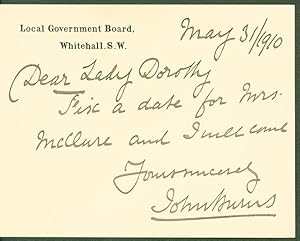 Local Government Board,
Whitehall. S.W.
May 31/1910
Dear Lady Dorothy
Fix a date for Mrs.
McClure and I will come
Yours sincerely
John Burns